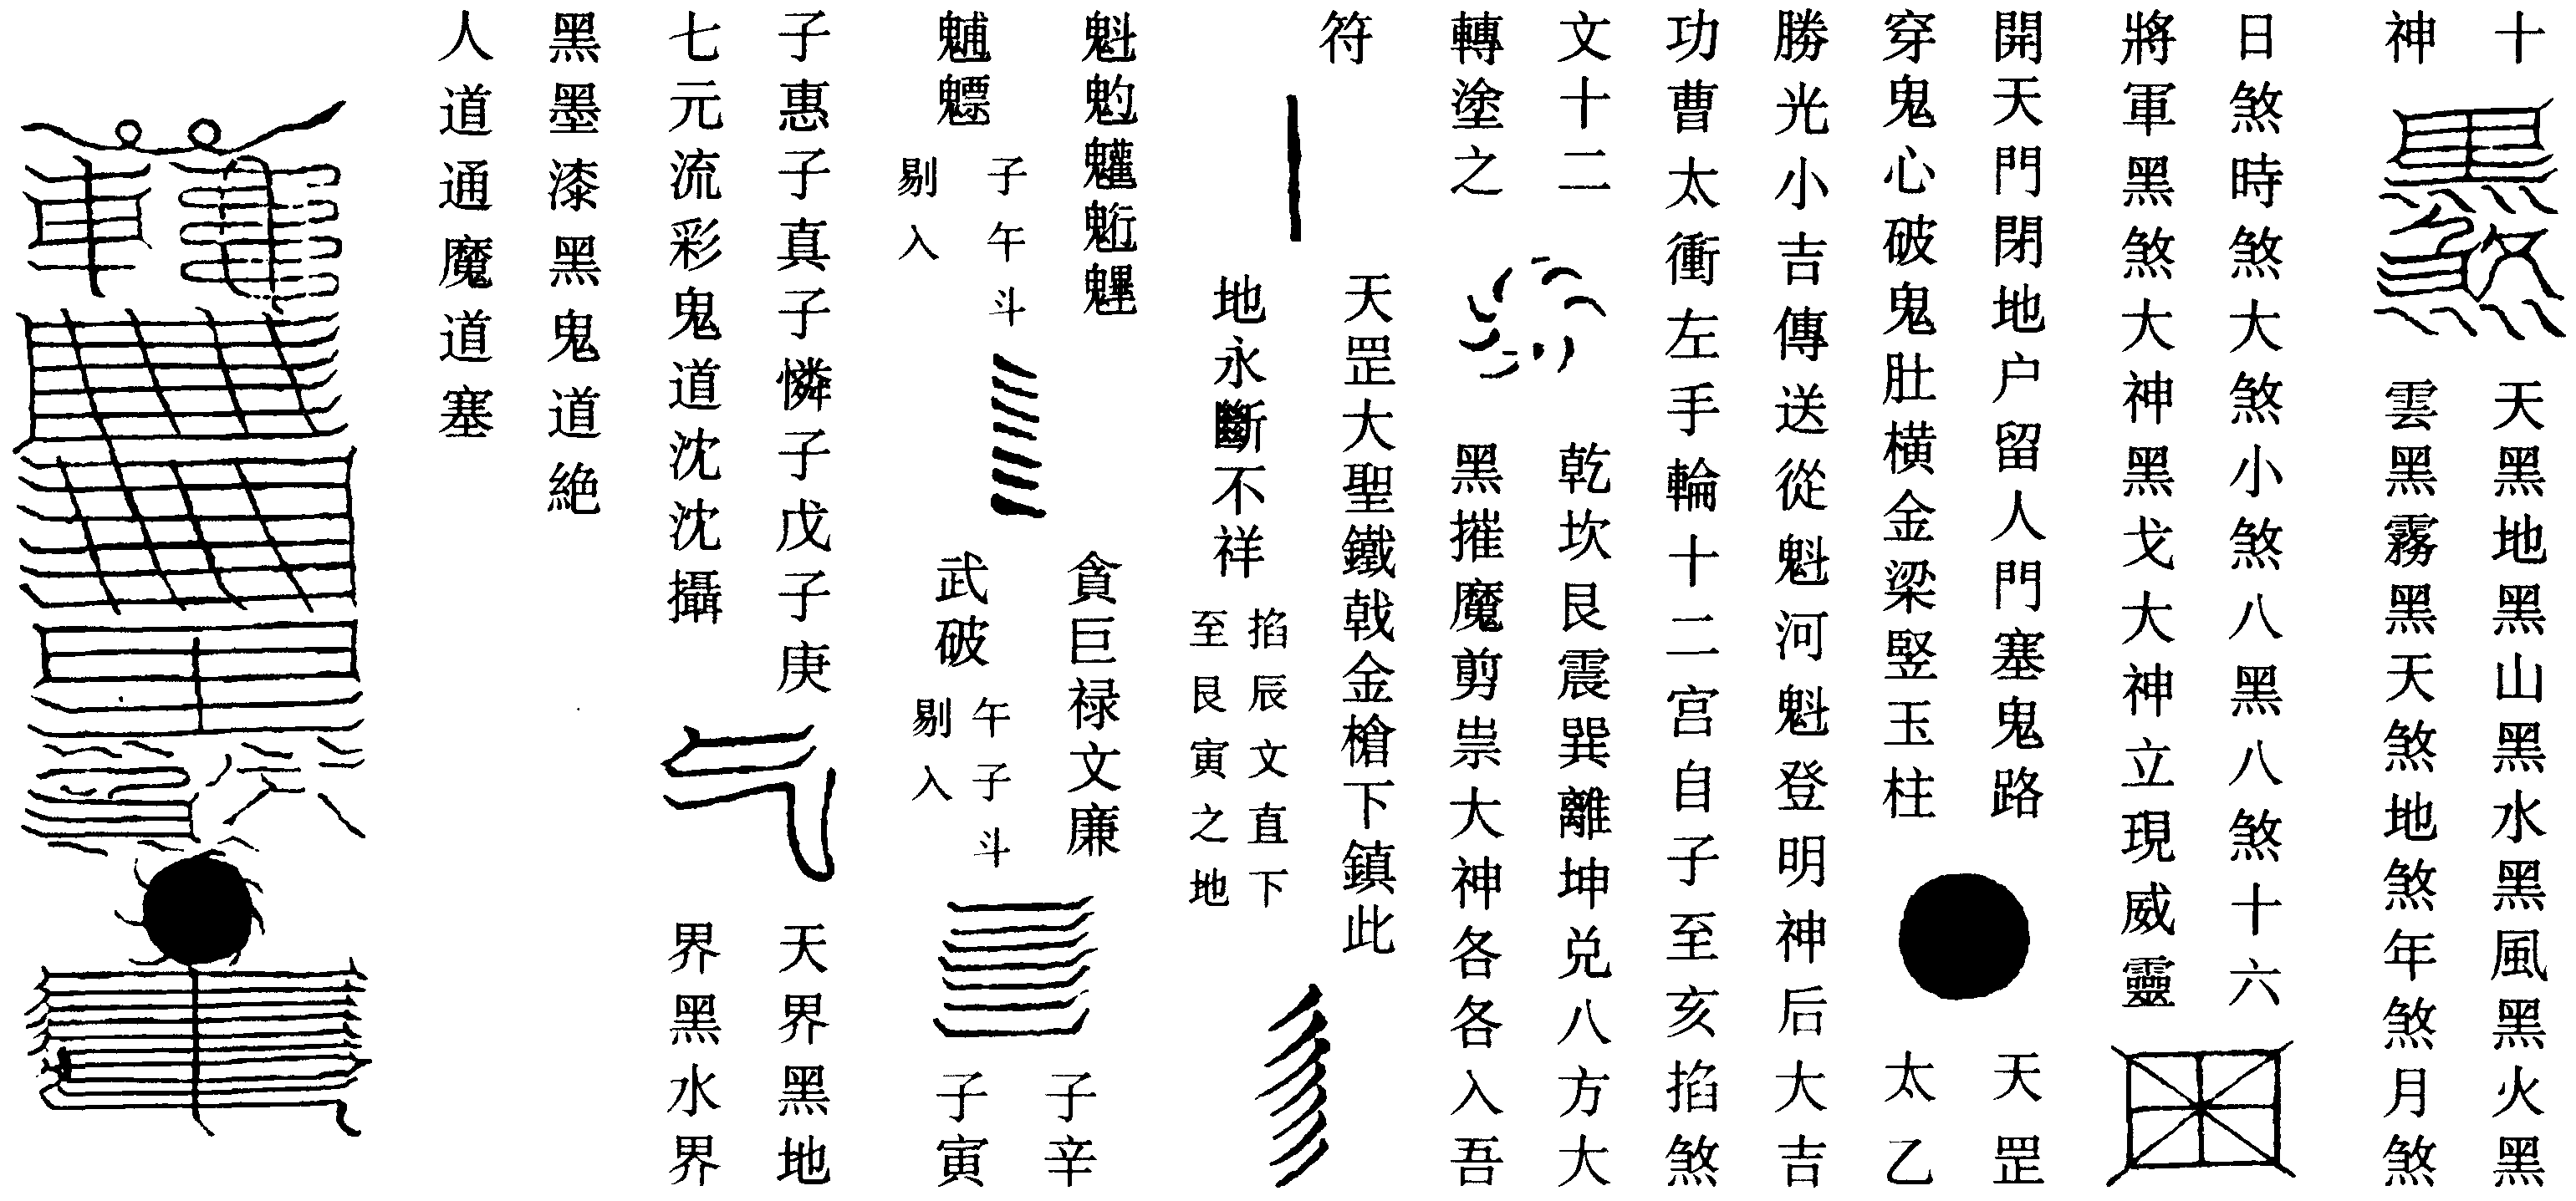 十
神
天黑地黑山黑水黑風黑火黑
雲黑霧黑天煞地煞年煞月煞
日煞時煞大煞小煞八黑八煞十六
將軍黑煞大神黑戈大神立現威靈
開天門閉地户留人門塞鬼路
穿鬼心破鬼肚横金梁竪玉柱
天罡
太乙
勝光小吉傳送從魁河魁登明神后大吉
功曹太衝左手輪十二宫自子至亥掐煞
文十二
轉塗之
乾坎艮震巽離坤兑八方大
黑摧魔剪祟大神各各入吾
符
天罡大聖鐵戟金槍下鎮此
地永斷不祥
掐辰文直下
至艮寅之地
魁𩲃𩵄䰢魓
𩳐魒
子午斗
剔入
貪巨禄文廉
武破
午子斗
剔入
子辛
子寅
子惠子真子憐子戊子庚
七元流彩鬼道沈沈攝
天界黑地
界黑水界
黑墨漆黑鬼道絶
人道通魔道塞